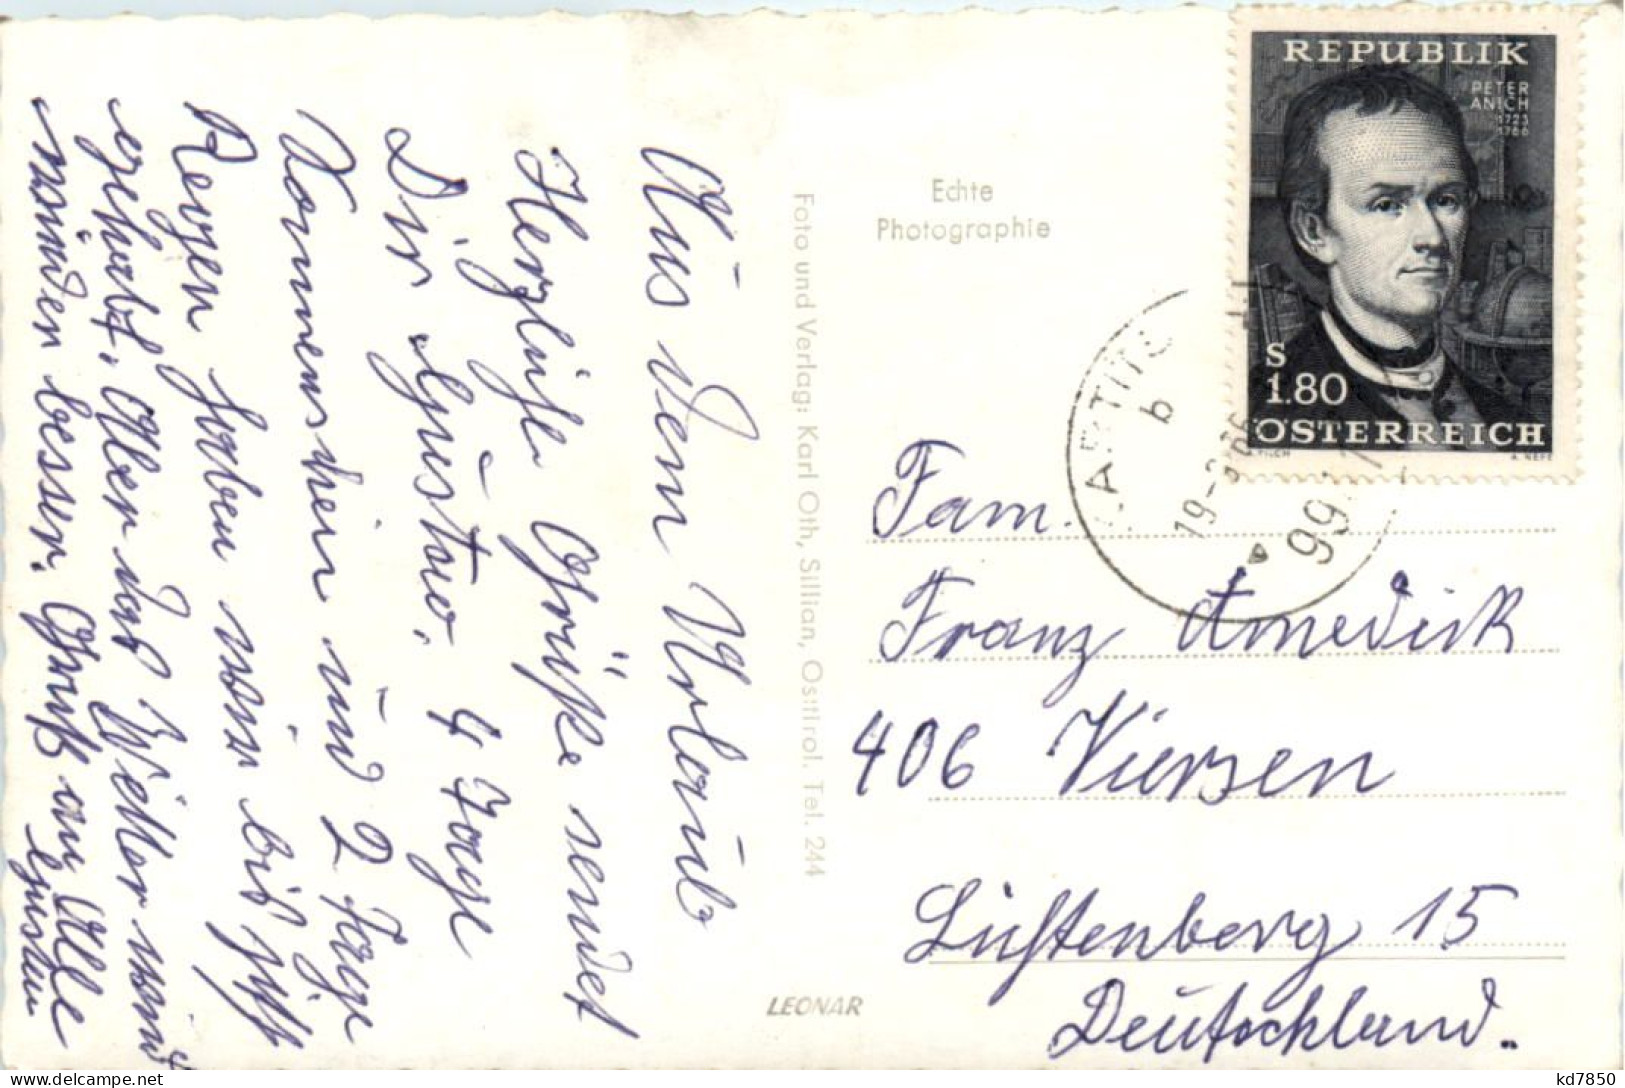 Aus dem Urlaub
Herzliche Grüße sendet
Dir Gustav. 4 Tage
Sonnenschein und 2 Tage
Regen haben wir bis jetzt
gehabt. Aber das Wetter wird
besser. Gruß an Alle
Gustav
Foto und Verlag: Karl Oth, Sillian, Osttirol. Tel. 244
LEONAR
Echte
Photographie
REPUBLIK
PETER
ANICH
1723
1766
S
1.80
ÖSTERREICH
b
99
Fam.
Franz Amedick
406 Viersen
Lüftenberg 15
Deutschland.
kd7850